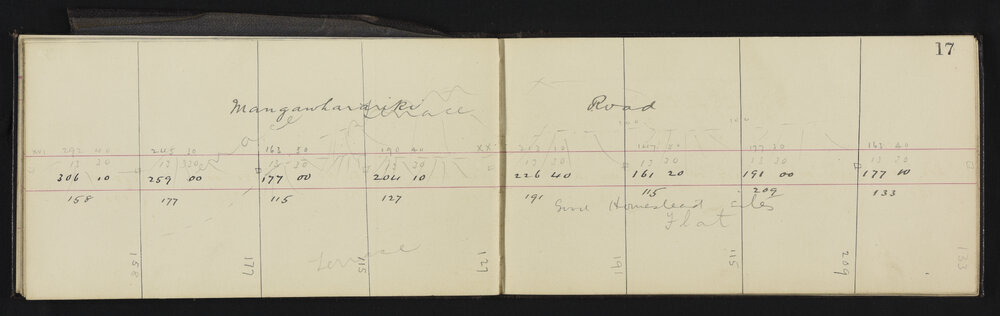 17
Mangawharariki Road
terrace
XVI 292 40 245 30 163 30 190 40 XX 213 10 147 50 177 30 163 40
13 30 13 30 13 30 13 30 13 30 13 30 13 30 13 30
306 10 259 00 177 00 204 10 226 40 161 20 191 00 177 10
158 177 115 127 191 115 209 133
Good Homestead sites
Flat
terrace
158 177 115 127 191 115 209 133